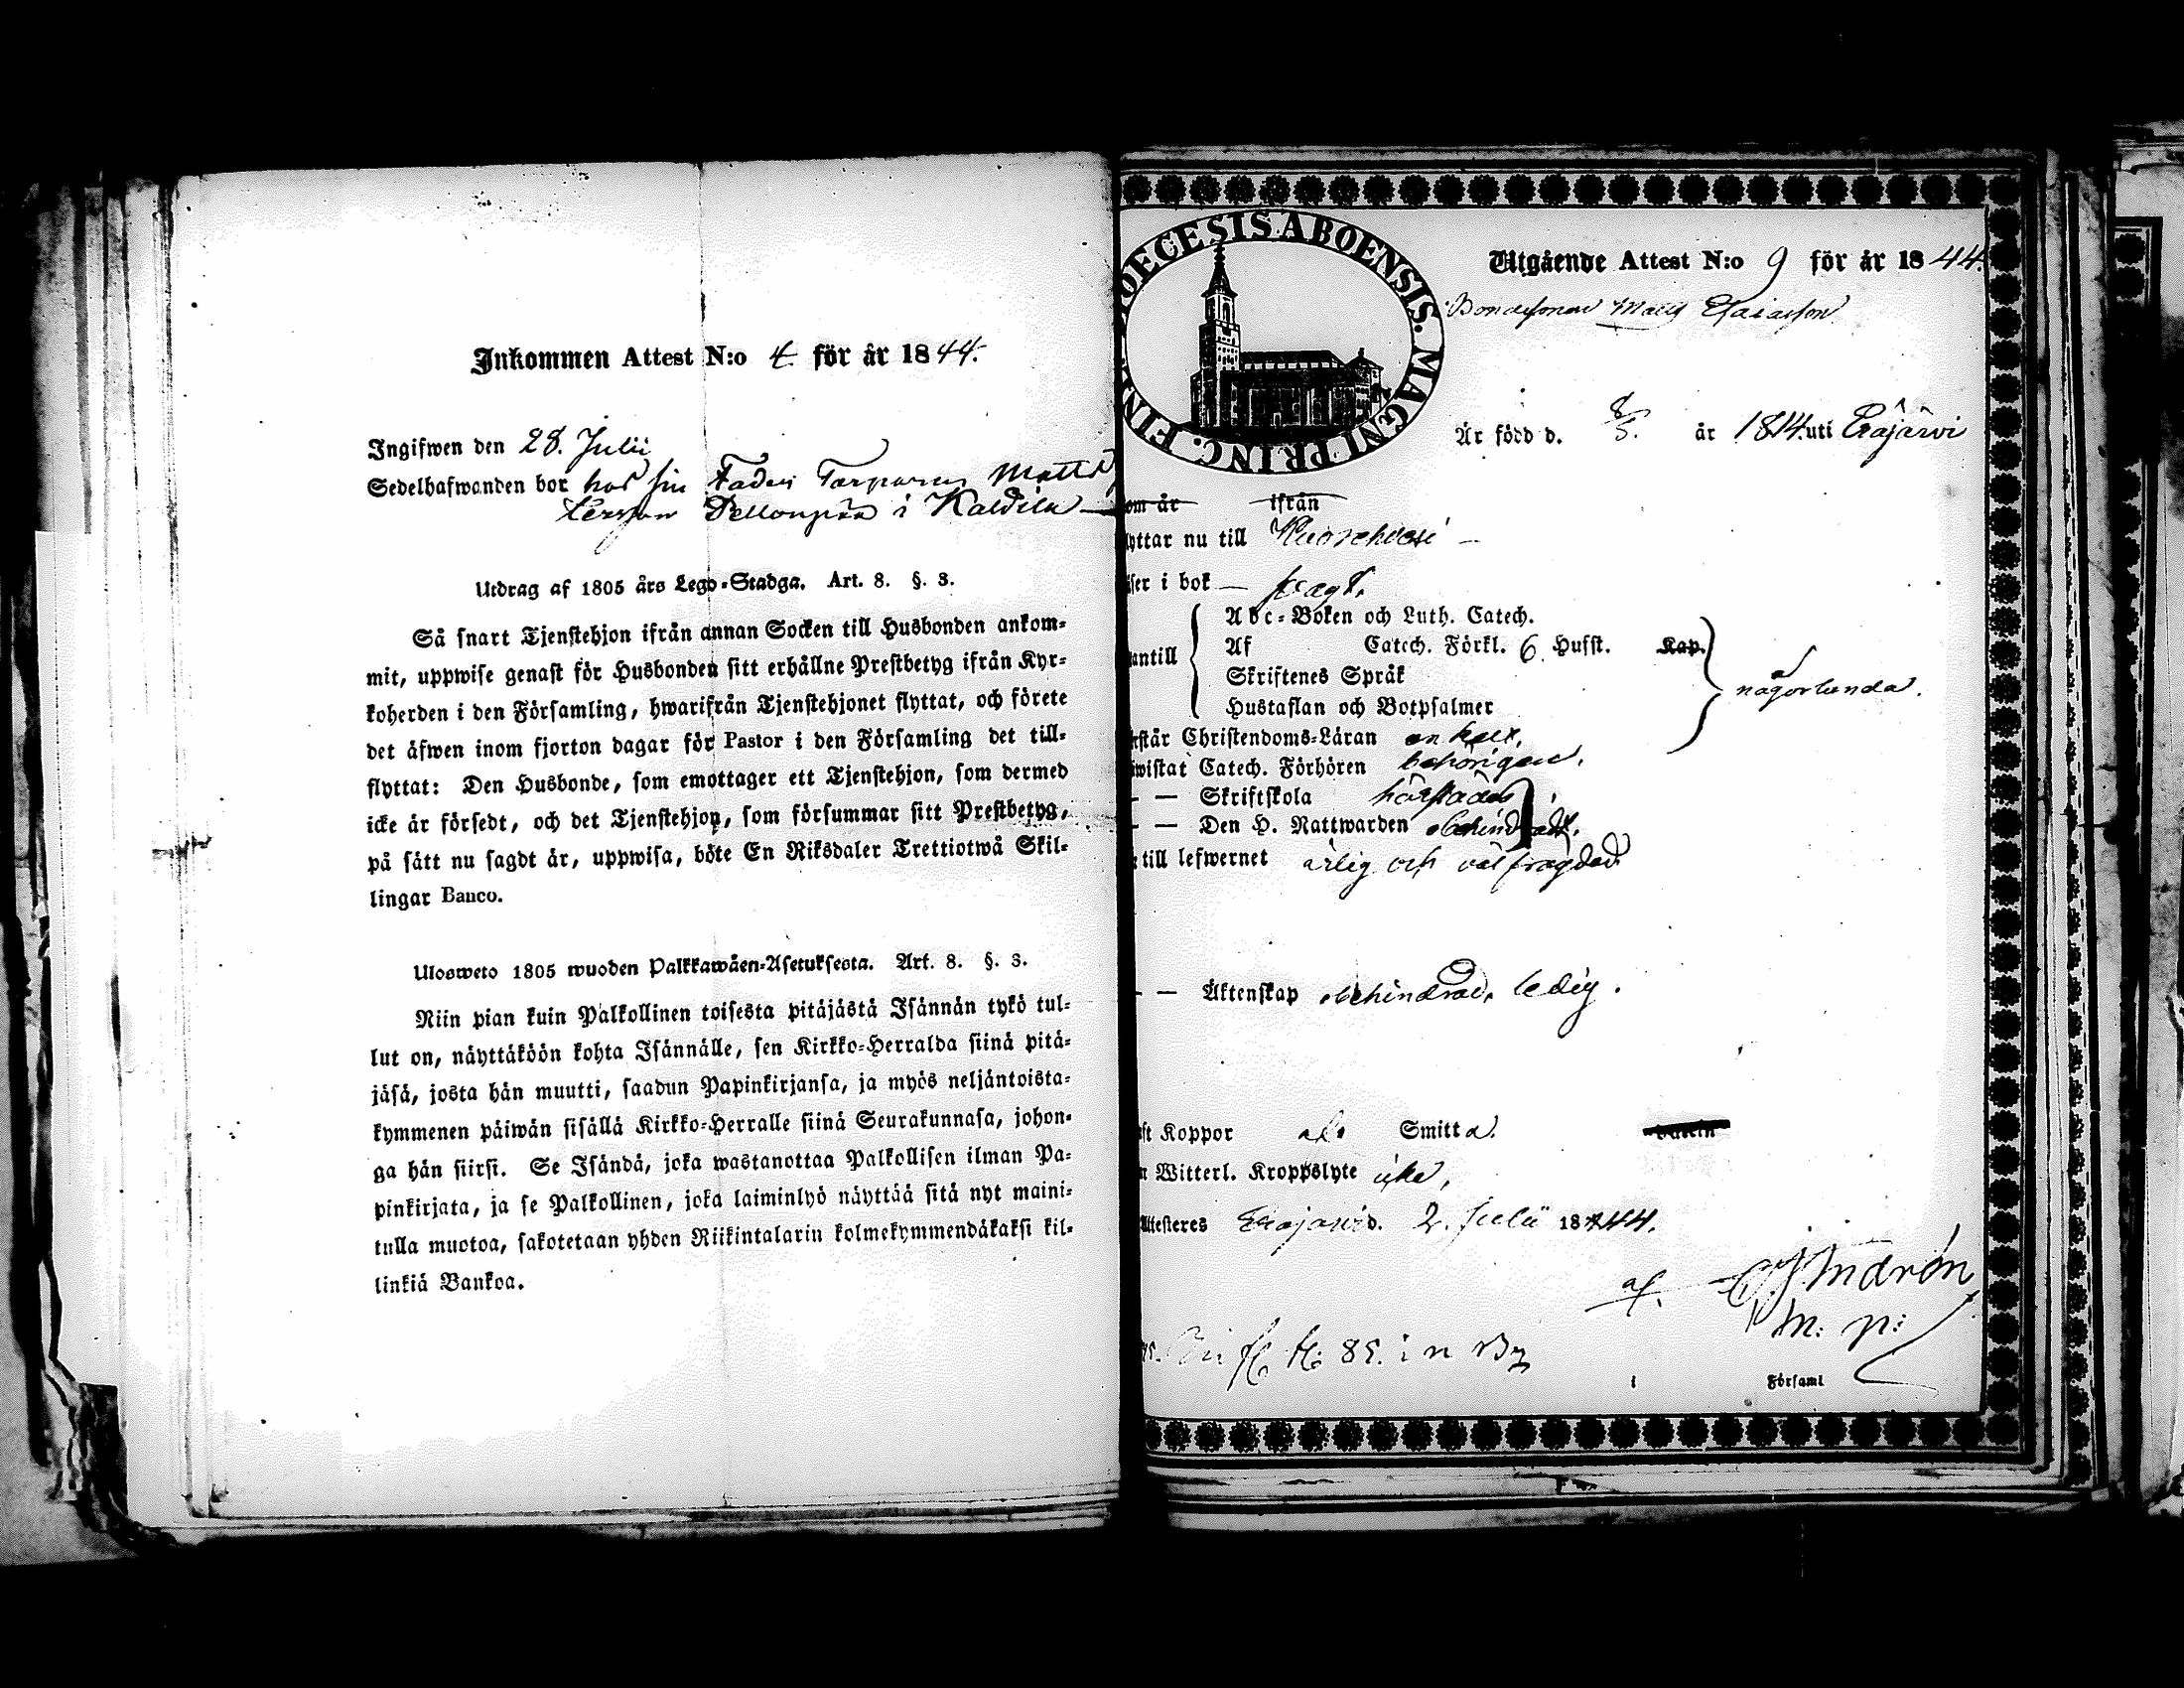 Inkommen Attest N:o 4. för år 1844.
Ingifwen den 28. Julii
Sedelhafwanden bor hos sin Fader Torparen Matts
i Kaldila
Utdrag af 1805 års Lego-Stadga. Art. 8. §. 3.
Så snart Tjenstehjon ifrån annan Socken till Husbonden ankom-
mit, uppwise genast för Husbonden sitt erhållne Prestbetyg ifrån Kyr-
koherden i den Församling, hwarifrån Tjenstehjonet flyttat, och förete
det äfwen inom fjorton dagar för Pastor i den Församling det till-
flyttat: Den Husbonde, som emottager ett Tjenstehjon, som dermed
icke är försedt, och det Tjenstehjon, som försummar sitt Prestbetyg,
på sätt nu sagdt är, uppwisa, böte En Riksdaler Trettiotwå Skil-
lingar Banco.
Ulosweto 1805 wuoden Palkkawäen-Asetuksesta. Art. 8. §. 3.
Niin pian kuin Palkollinen toisesta pitäjästä Isännän tykö tul-
lut on, näyttäköön kohta Isännälle, sen Kirkko-Herralda siinä pitä-
jäsä, josta hän muutti, saadun Papinkirjansa, ja myös neljäntoista-
kymmenen päiwän sisällä Kirkko-Herralle siinä Seurakunnasa, johon-
ga hän siirsi. Se Isändä, joka wastanottaa Palkollisen ilman Pa-
pinkirjata, ja se Palkollinen, joka laiminlyö näyttää sitä nyt maini-
tulla muotoa, sakotetaan yhden Riikintalarin kolmekymmendäkaksi kil-
linkiä Bankoa.
DIOECESIS ABOENSIS. MAGNI PRINC. FIN
Utgående Attest N:o 9 för år 1844.
Bondesonen Matts Esaiasson
Är född d. 8/5. år 1814. uti Eräjärvi
om är ifrån
lyttar nu till Kuorehvesi
äser i bok - svagt.
antill
Abc-Boken och Luth. Catech.
Af Catech. Förkl. 6. Hufst. Kap.
Skriftenes Språk
Hustaflan och Botpsalmer
någorlunda.
rstår Christendoms-Läran enkelt.
iwistat Catech. Förhören behörigen.
- - Skriftskola
- - Den H. Nattwarden obehindradt.
till lefwernet ärlig och välfrägdad
- - Äktenskap obehindrad, ledig.
st Koppor af Smitta.
n Witterl. Kroppslyte icke,
Attesteres Eräjärvi d. 2. Julii 1844.
af
m: p:
Församl